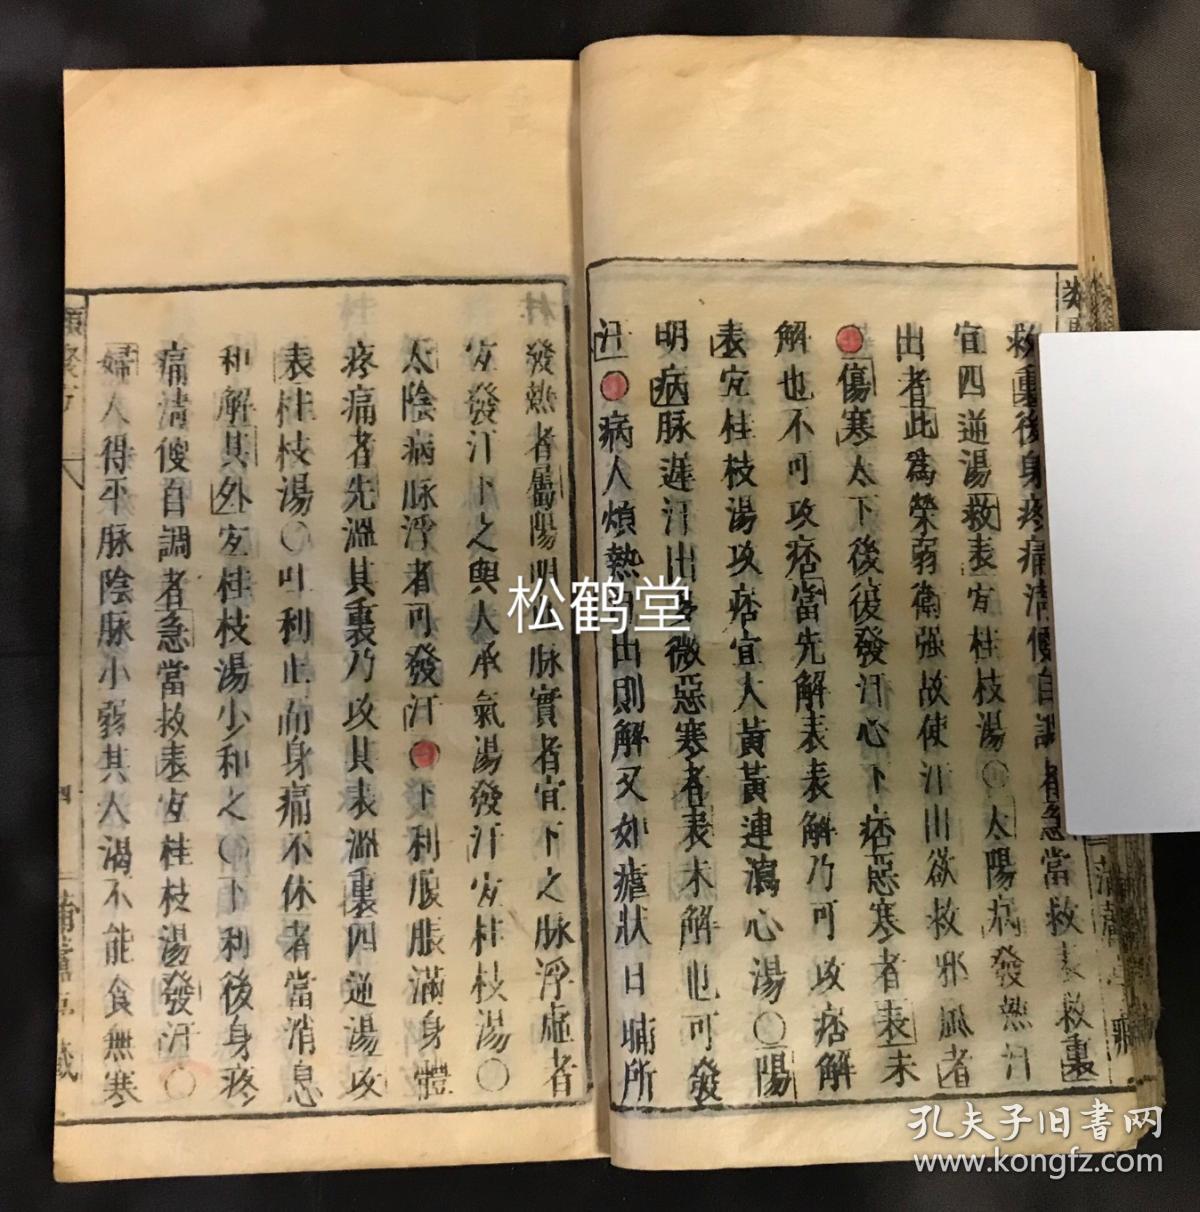 救裏後身疼痛清便自調者急當救表救裏
宜四逆湯救表宜桂枝湯〇太陽病發熱汗
出者此為榮弱衛強故使汗出欲救邪風者
傷寒大下後復發汗心下痞惡寒者表未
解也不可攻痞當先解表表解乃可攻痞解
表宜桂枝湯攻痞宜大黃黃連瀉心湯〇陽
明病脉遲汗出多微惡寒者表未解也可發
汗 病人煩熱汗出則解又如瘧狀日晡所
發熱者屬陽明也脉實者宜下之脉浮虛者
宜發汗下之與大承氣湯發汗宜桂枝湯〇
太陰病脉浮者可發汗 下利腹脹滿身體
疼痛者先溫其裏乃攻其表溫裏四逆湯攻
表桂枝湯〇吐利止而身痛不休者當消息
和解其外宜桂枝湯少和之〇下利後身疼
痛清便自調者急當救表宜桂枝湯發汗〇
婦人得平脉陰脉小弱其人渴不能食無寒
類聚方
四
松鹤堂
孔夫子旧书网
www.kongfz.com